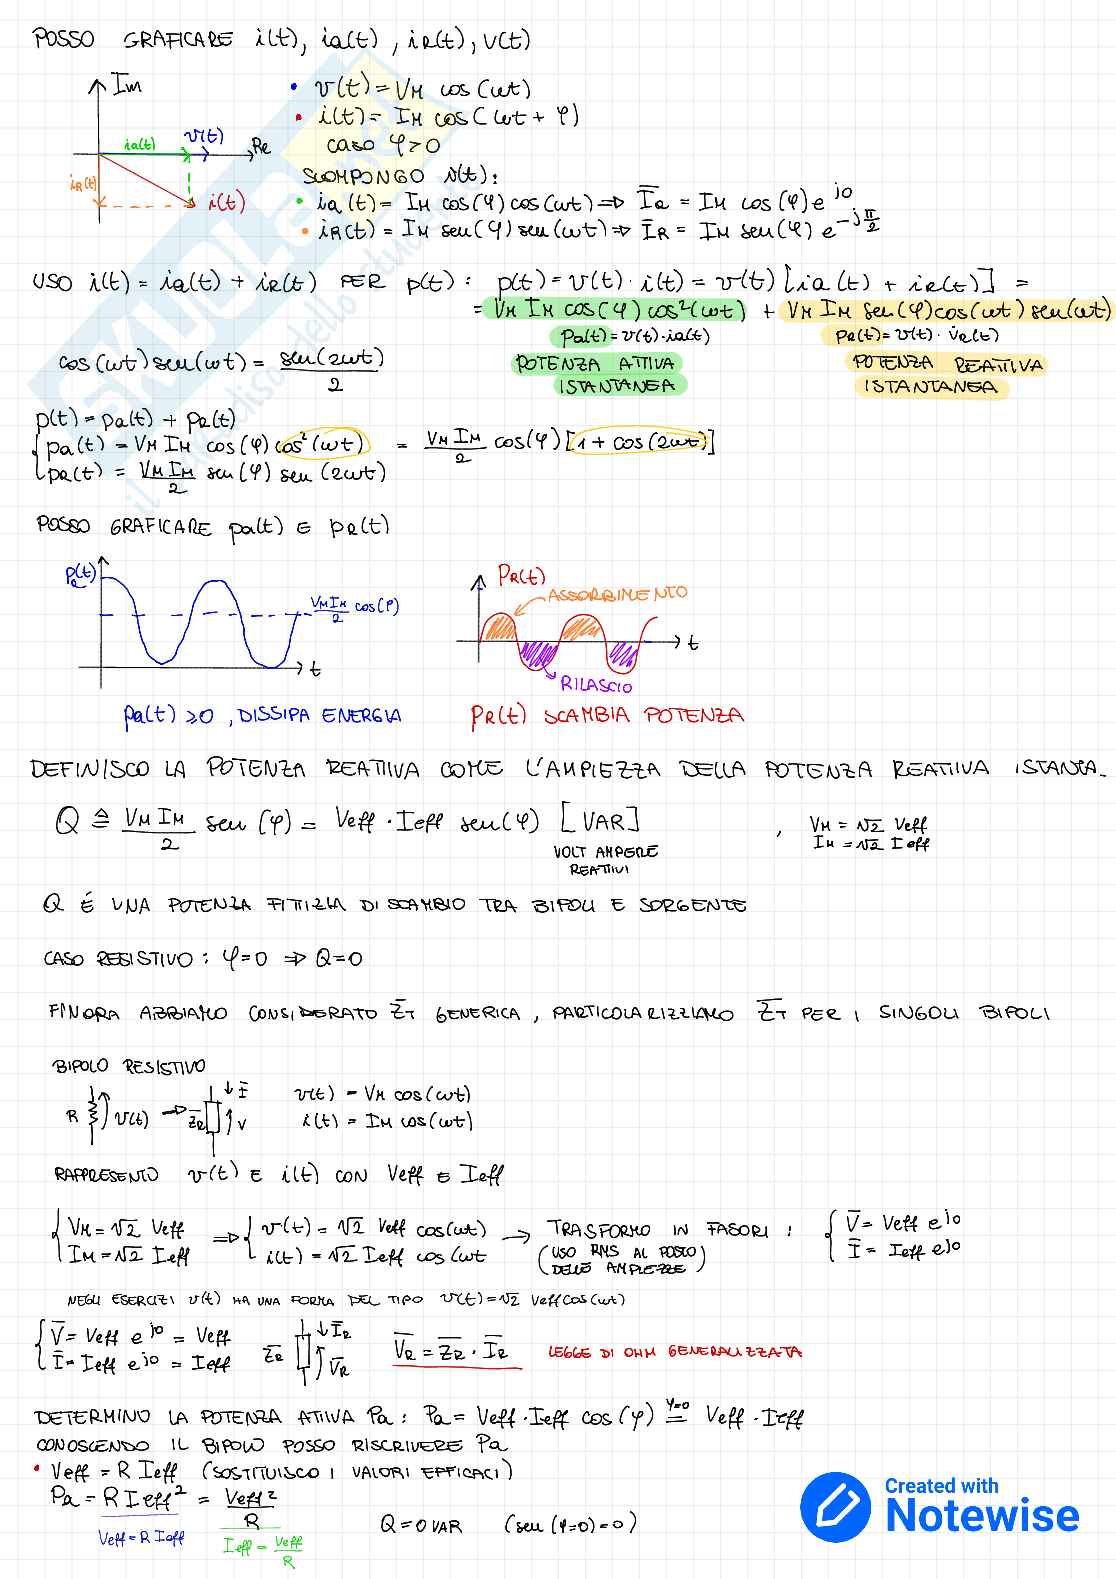 POSSO GRAFICARE i(t), ia(t), iR(t), V(t)
Im
ia(t) v(t) Re
iR(t)
i(t)
• v(t) = VM cos(ωt)
• i(t) = IM cos(ωt + φ)
CASO φ>0
SCOMPONGO i(t):
• ia(t) = IM cos(φ) cos(ωt) ⇒ Īa = IM cos(φ) e^j0
• iR(t) = IM sen(φ) sen(ωt) ⇒ ĪR = IM sen(φ) e^-jπ/2
USO i(t) = ia(t) + iR(t) PER p(t): p(t) = v(t) · i(t) = v(t) [ia(t) + iR(t)] =
= VM IM cos(φ) cos²(ωt) + VM IM sen(φ) cos(ωt) sen(ωt)
pa(t) = v(t)·ia(t) pR(t) = v(t) · iR(t)
cos(ωt) sen(ωt) = sen(2ωt)/2
POTENZA ATTIVA ISTANTANEA
POTENZA REATTIVA ISTANTANEA
p(t) = pa(t) + pR(t)
pa(t) = VM IM cos(φ) cos²(ωt) = VM IM/2 cos(φ) [1 + cos(2ωt)]
pR(t) = VM IM/2 sen(φ) sen(2ωt)
POSSO GRAFICARE pa(t) E pR(t)
pa(t)
VM IM/2 cos(φ)
t
PR(t)
ASSORBIMENTO
t
RILASCIO
pa(t) ≥0, DISSIPA ENERGIA
PR(t) SCAMBIA POTENZA
DEFINISCO LA POTENZA REATTIVA COME L'AMPIEZZA DELLA POTENZA REATTIVA ISTANTA.
Q ≜ VM IM/2 sen(φ) = Veff · Ieff sen(φ) [VAR] , VM = √2 Veff
IM = √2 Ieff
VOLT AMPERE
REATTIVI
Q É UNA POTENZA FITTIZIA DI SCAMBIO TRA BIPOLI E SORGENTE
CASO RESISTIVO: φ=0 ⇒ Q=0
FINORA ABBIAMO CONSIDERATO Z̄T GENERICA, PARTICOLARIZZIAMO Z̄T PER I SINGOLI BIPOLI
BIPOLO RESISTIVO
R v(t) → Z̄R Ī V
v(t) = VM cos(ωt)
i(t) = IM cos(ωt)
RAPPRESENTO v(t) E i(t) CON Veff E Ieff
VM = √2 Veff ⇒ v(t) = √2 Veff cos(ωt) → TRASFORMO IN FASORI: V̄ = Veff e^j0
IM = √2 Ieff i(t) = √2 Ieff cos(ωt (USO RMS AL POSTO DELLE AMPIEZZE) Ī = Ieff e^j0
NEGLI ESERCIZI v(t) HA UNA FORMA DEL TIPO v(t) = √2 Veff cos(ωt)
V̄ = Veff e^j0 = Veff
Ī = Ieff e^j0 = Ieff
Z̄R ĪR V̄R
V̄R = Z̄R · ĪR LEGGE DI OHM GENERALIZZATA
DETERMINO LA POTENZA ATTIVA Pa: Pa = Veff · Ieff cos(φ) =(φ=0) Veff · Ieff
CONOSCENDO IL BIPOLO POSSO RISCRIVERE Pa
• Veff = R Ieff (SOSTITUISCO I VALORI EFFICACI)
Pa = R Ieff² = Veff²/R
Veff = R Ieff
Ieff = Veff/R
Q = 0 VAR (sen(φ=0) = 0)
Created with
Notewise
SKUOLA.net